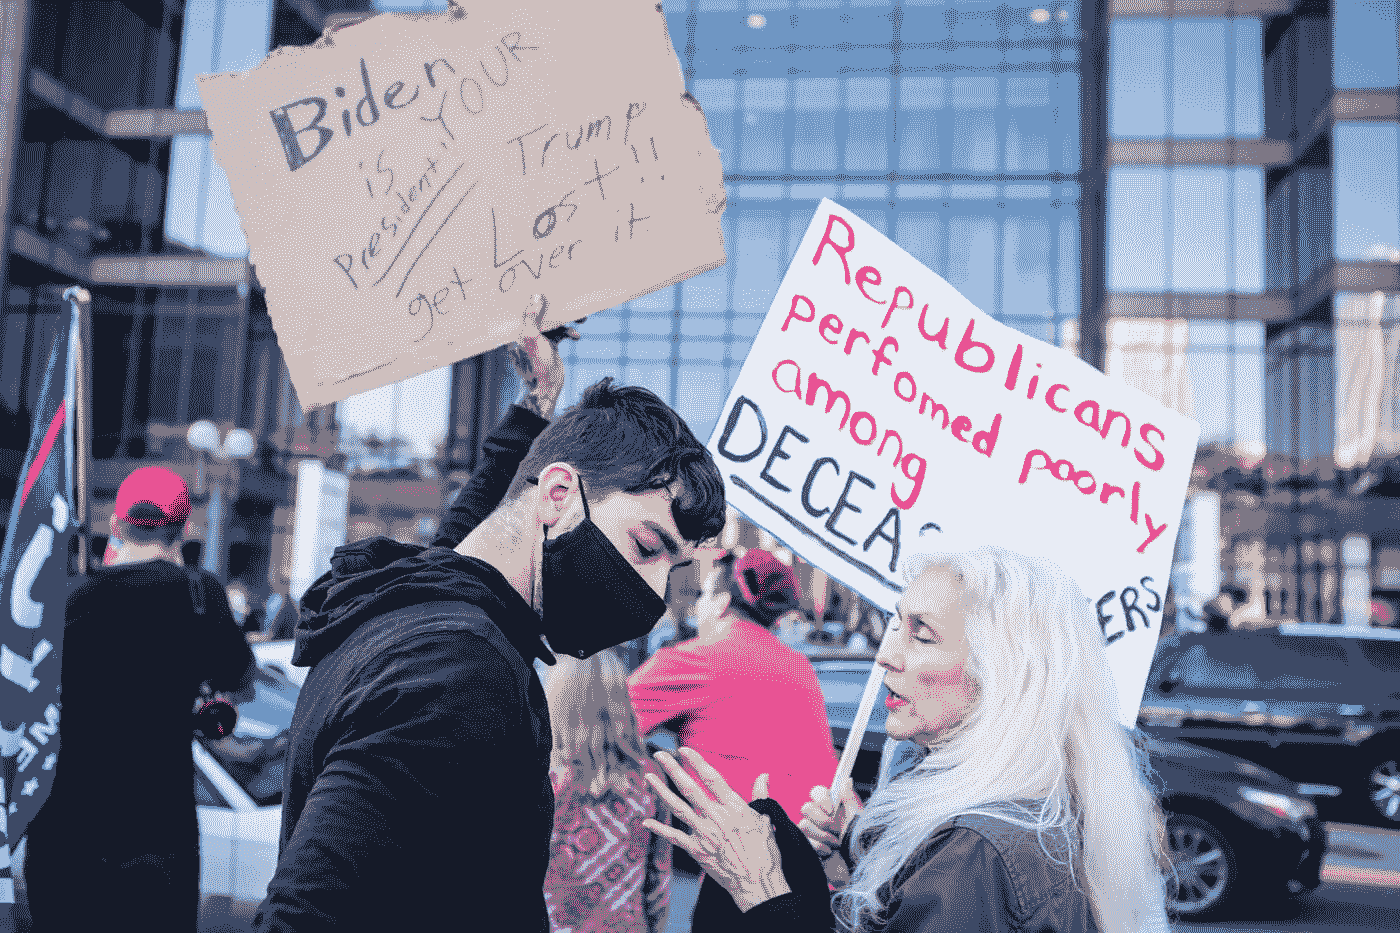 Biden
is YOUR
President!!
Trump
Lost!!
get over it
Republicans
perfomed poorly
among
DECEAS
ERS